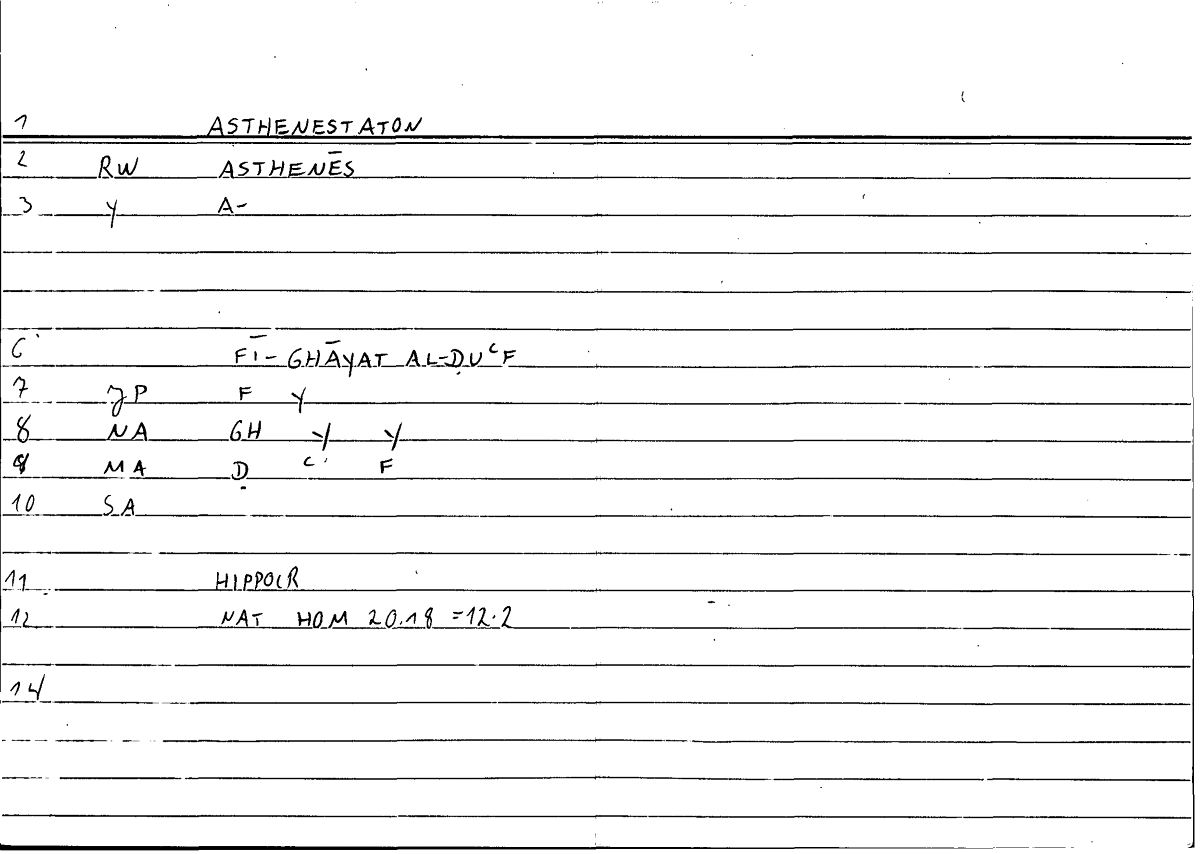 1 ASTHENESTATON
2 RW ASTHENĒS
3 Y A-
6 FĪ-GHĀYAT AL-ḌUᶜF
7 JP F Y
8 NA GH Y Y
9 MA Ḍ ᶜ F
10 SA
11 HIPPOCR
12 NAT HOM 20.18 =12.2
14